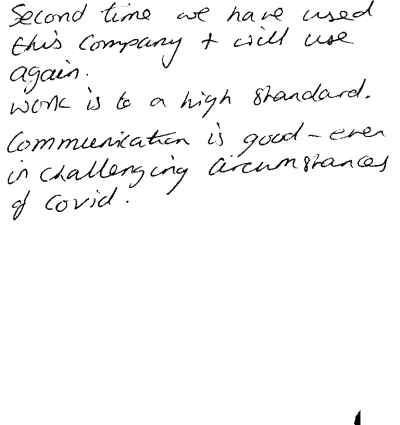 Second time we have used
this Company + will use
again.
Work is to a high standard.
Communication is good - even
in challenging circumstances
of Covid.